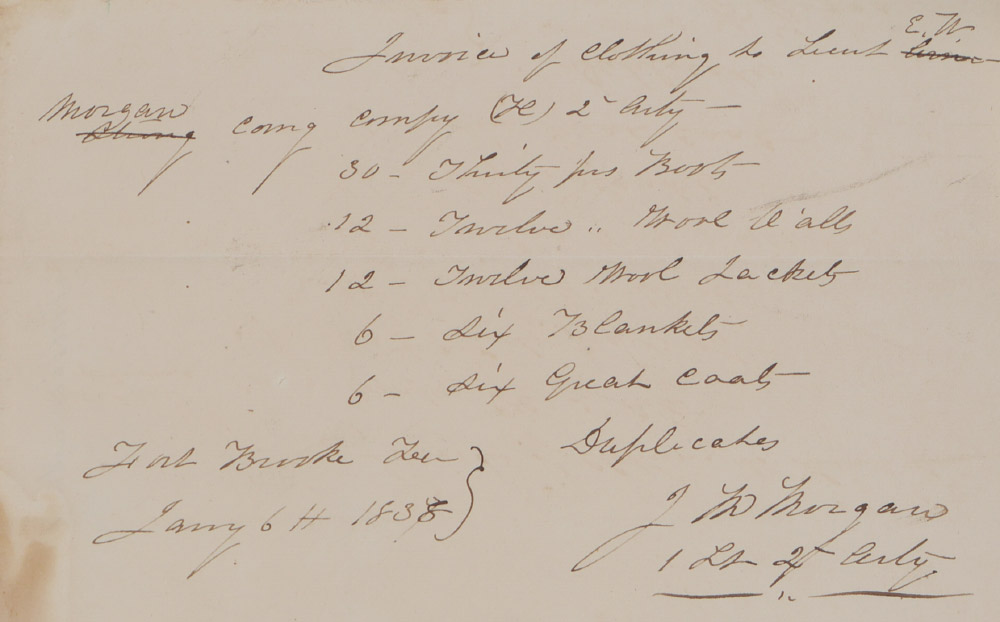 E. W.
Invoice of Clothing to Lieut
Morgan
comg compy (H) 2d Arty —
30 - Thirty prs Boots
12 - Twelve " Wool O'alls
12 - Twelve Wool Jackets
6 - Six Blankets
6 - Six Great Coats
Duplicates
Fort Brooke Ter
Jany 6th 1838
Morgan
1 Lt 2d Arty